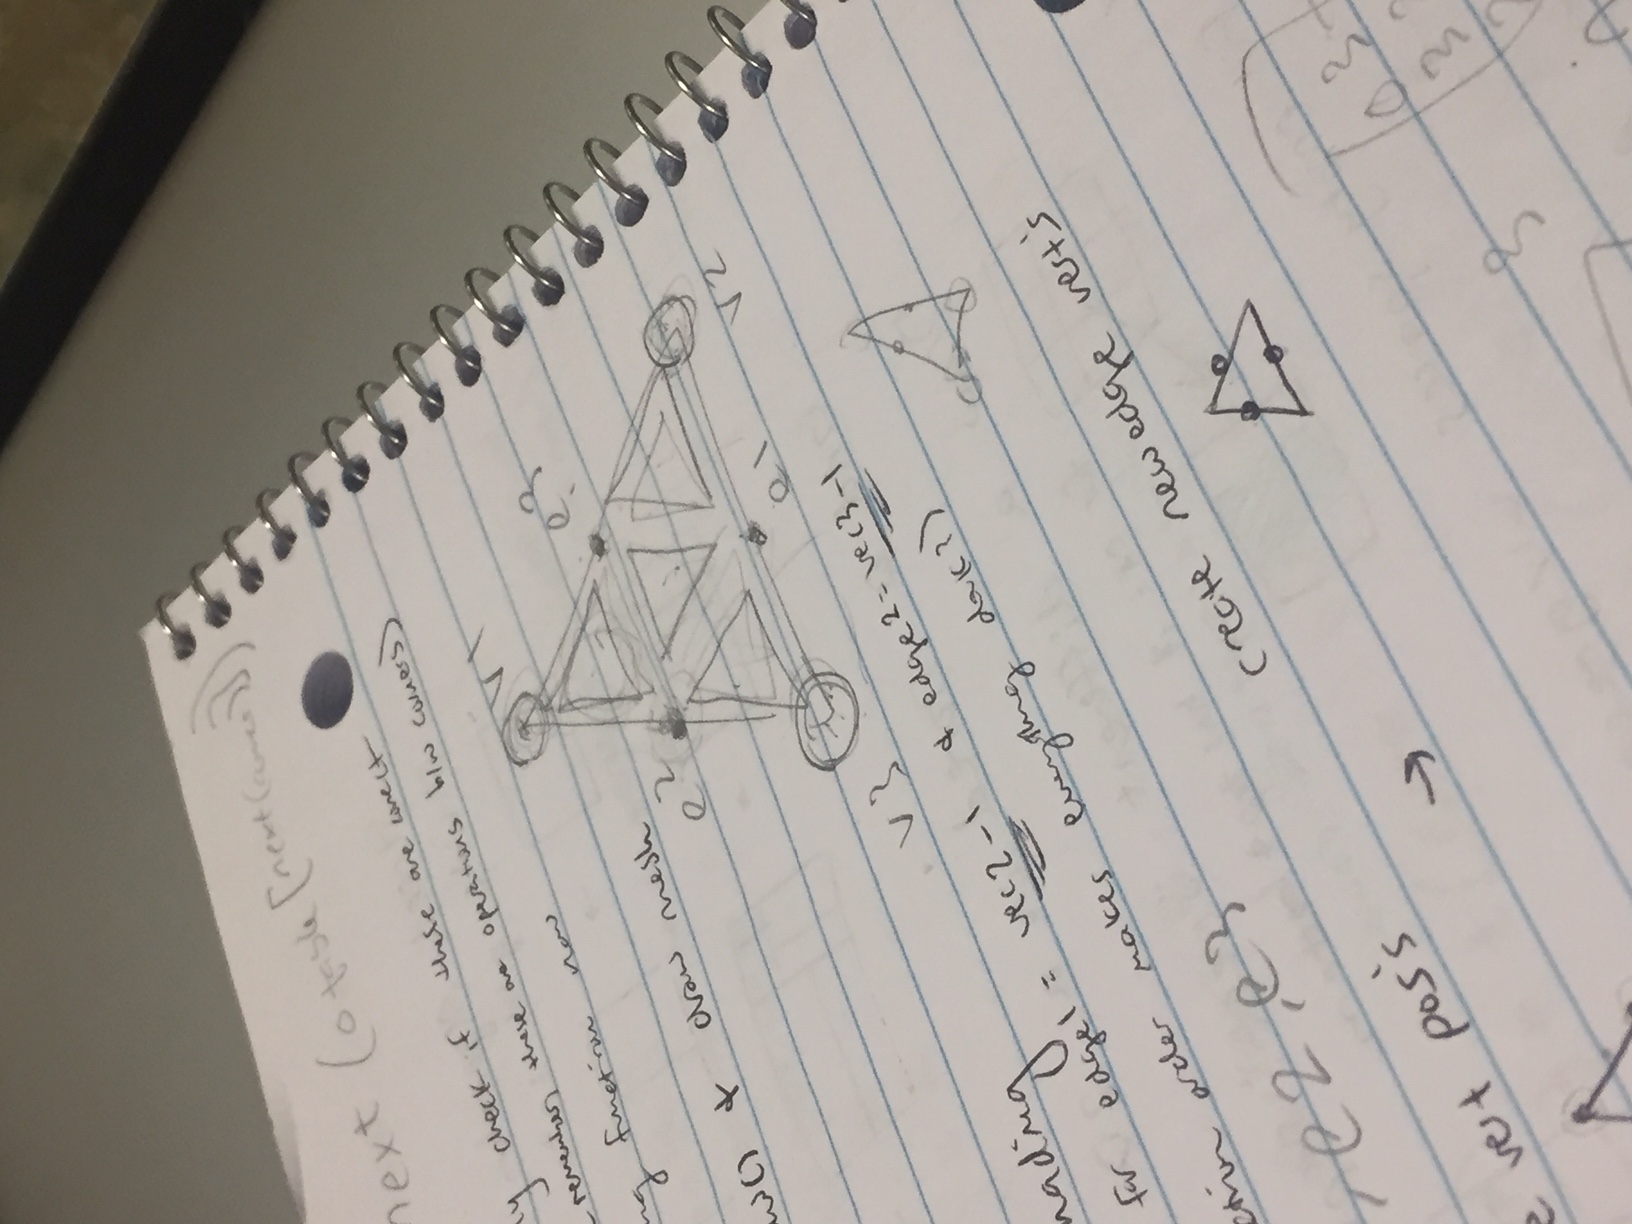 next (o table [next(corner)])
ly check if these are correct
remember, these are operations b/w corners)
ng function now
w() & draw mesh
v1
e3
e2
v2
e1
v3
hading
for edge1 = vec2-1 & edge2 = vec3-1
ction order makes everything dark?)
, e2, e3
create new edge vert's
e vert pos's →
0 3
3
3